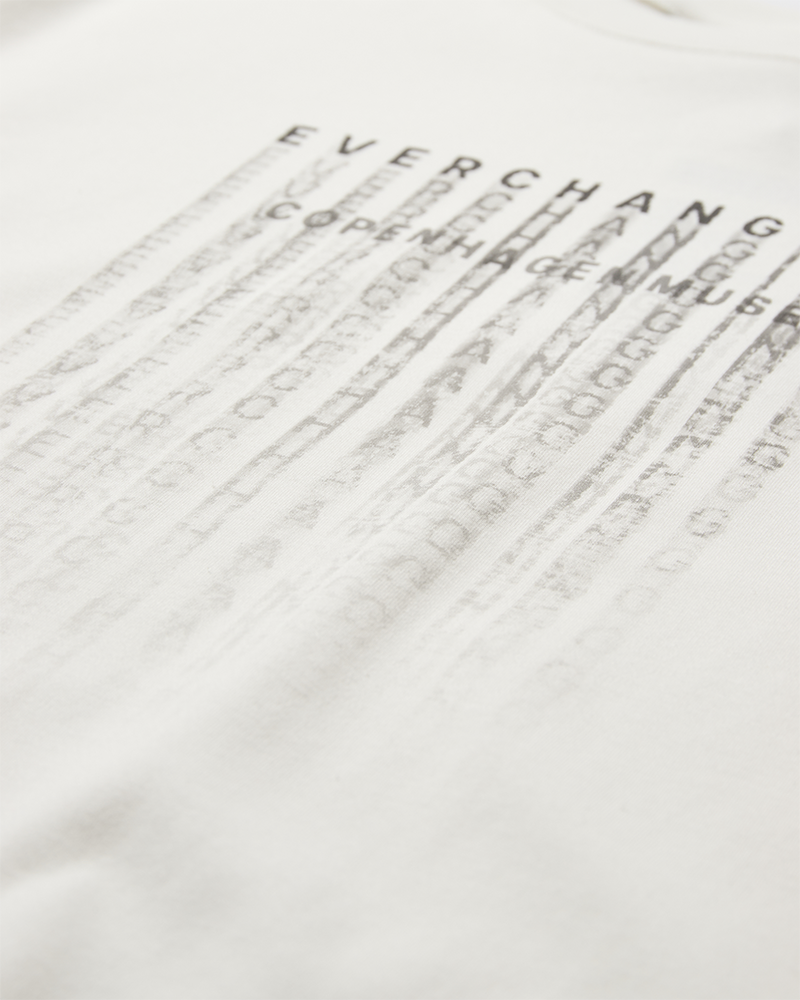 EVERCHANG
COPENHAGEN MUSE